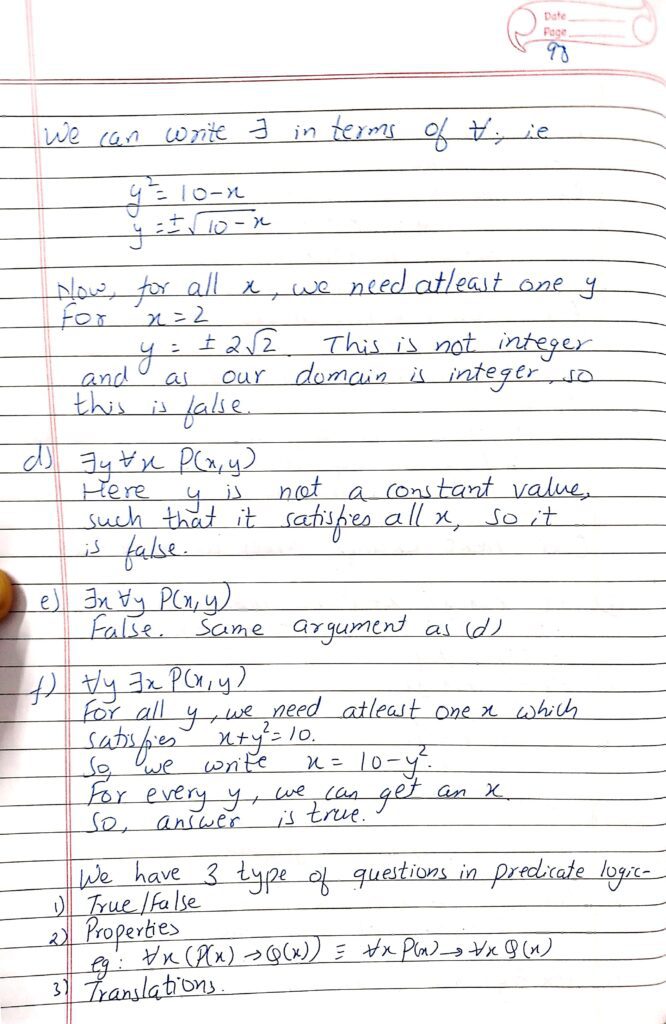 Date
Page
98
We can write ∃ in terms of ∀, ie
y²= 10-x
y = ±√10-x
Now, for all x, we need atleast one y
For x = 2
y = ± 2√2. This is not integer
and as our domain is integer, so
this is false.
d) ∃y ∀x P(x,y)
Here y is not a constant value,
such that it satisfies all x, so it
is false.
e) ∃x ∀y P(x,y)
False. Same argument as (d)
f) ∀y ∃x P(x,y)
For all y, we need atleast one x which
satisfies x+y²=10.
So, we write x = 10-y².
For every y, we can get an x.
So, answer is true.
We have 3 type of questions in predicate logic-
1) True/False
2) Properties
eg: ∀x (P(x) → Q(x)) ≡ ∀x P(x) → ∀x Q(x)
3) Translations.